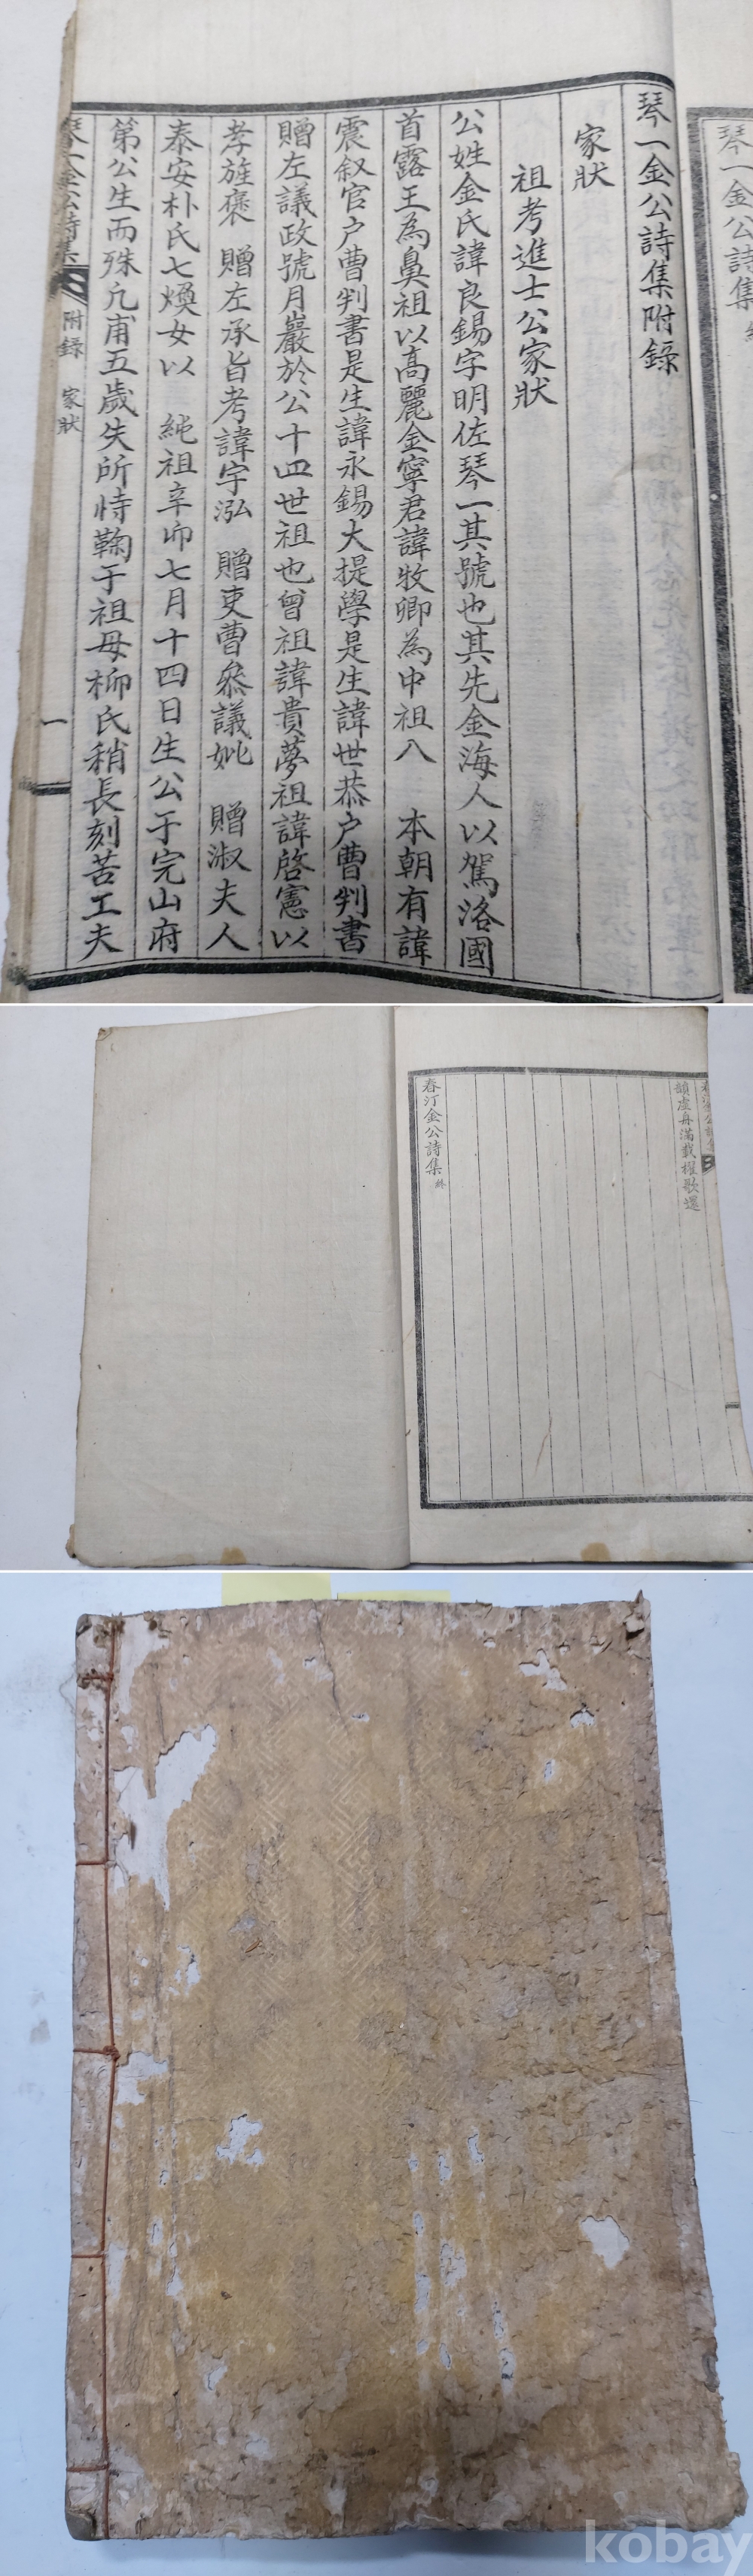 琴一金公詩集
琴一金公詩集附錄
家狀
祖考進士公家狀
公姓金氏諱良錫字明佐琴一其號也其先金海人以駕洛國
首露王為鼻祖以高麗金寧君諱牧卿為中祖入 本朝有諱
震叙官户曹判書是生諱永錫大提學是生諱世恭户曹判書
贈左議政號月巖於公十四世祖也曾祖諱貴夢祖諱啓憲以
孝旌褒 贈左承旨考諱宇泓 贈吏曹叅議妣 贈淑夫人
泰安朴氏七煥女以 純祖辛卯七月十四日生公于完山府
第公生而殊凡甫五歲失所恃鞠于祖母柳氏稍長刻苦工夫
琴一金公詩集 附錄 家狀 一
韻虛舟滿載櫂歌還
春汀金公詩集 終
kobay